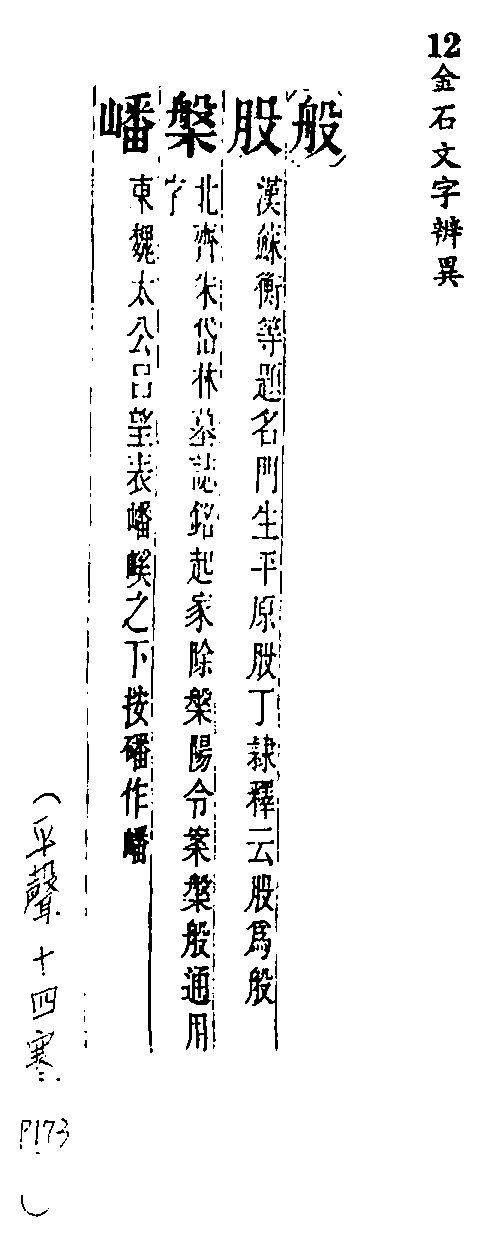 12金石文字辨異
般
股 漢蘇衡等題名門生平原股丁隷釋云股爲般
槃 北齊朱岱林墓誌銘起家除槃陽令案槃般通用
字
嶓 東魏太公呂望表嶓嵠之下按磻作嶓
(平聲十四寒 P173)